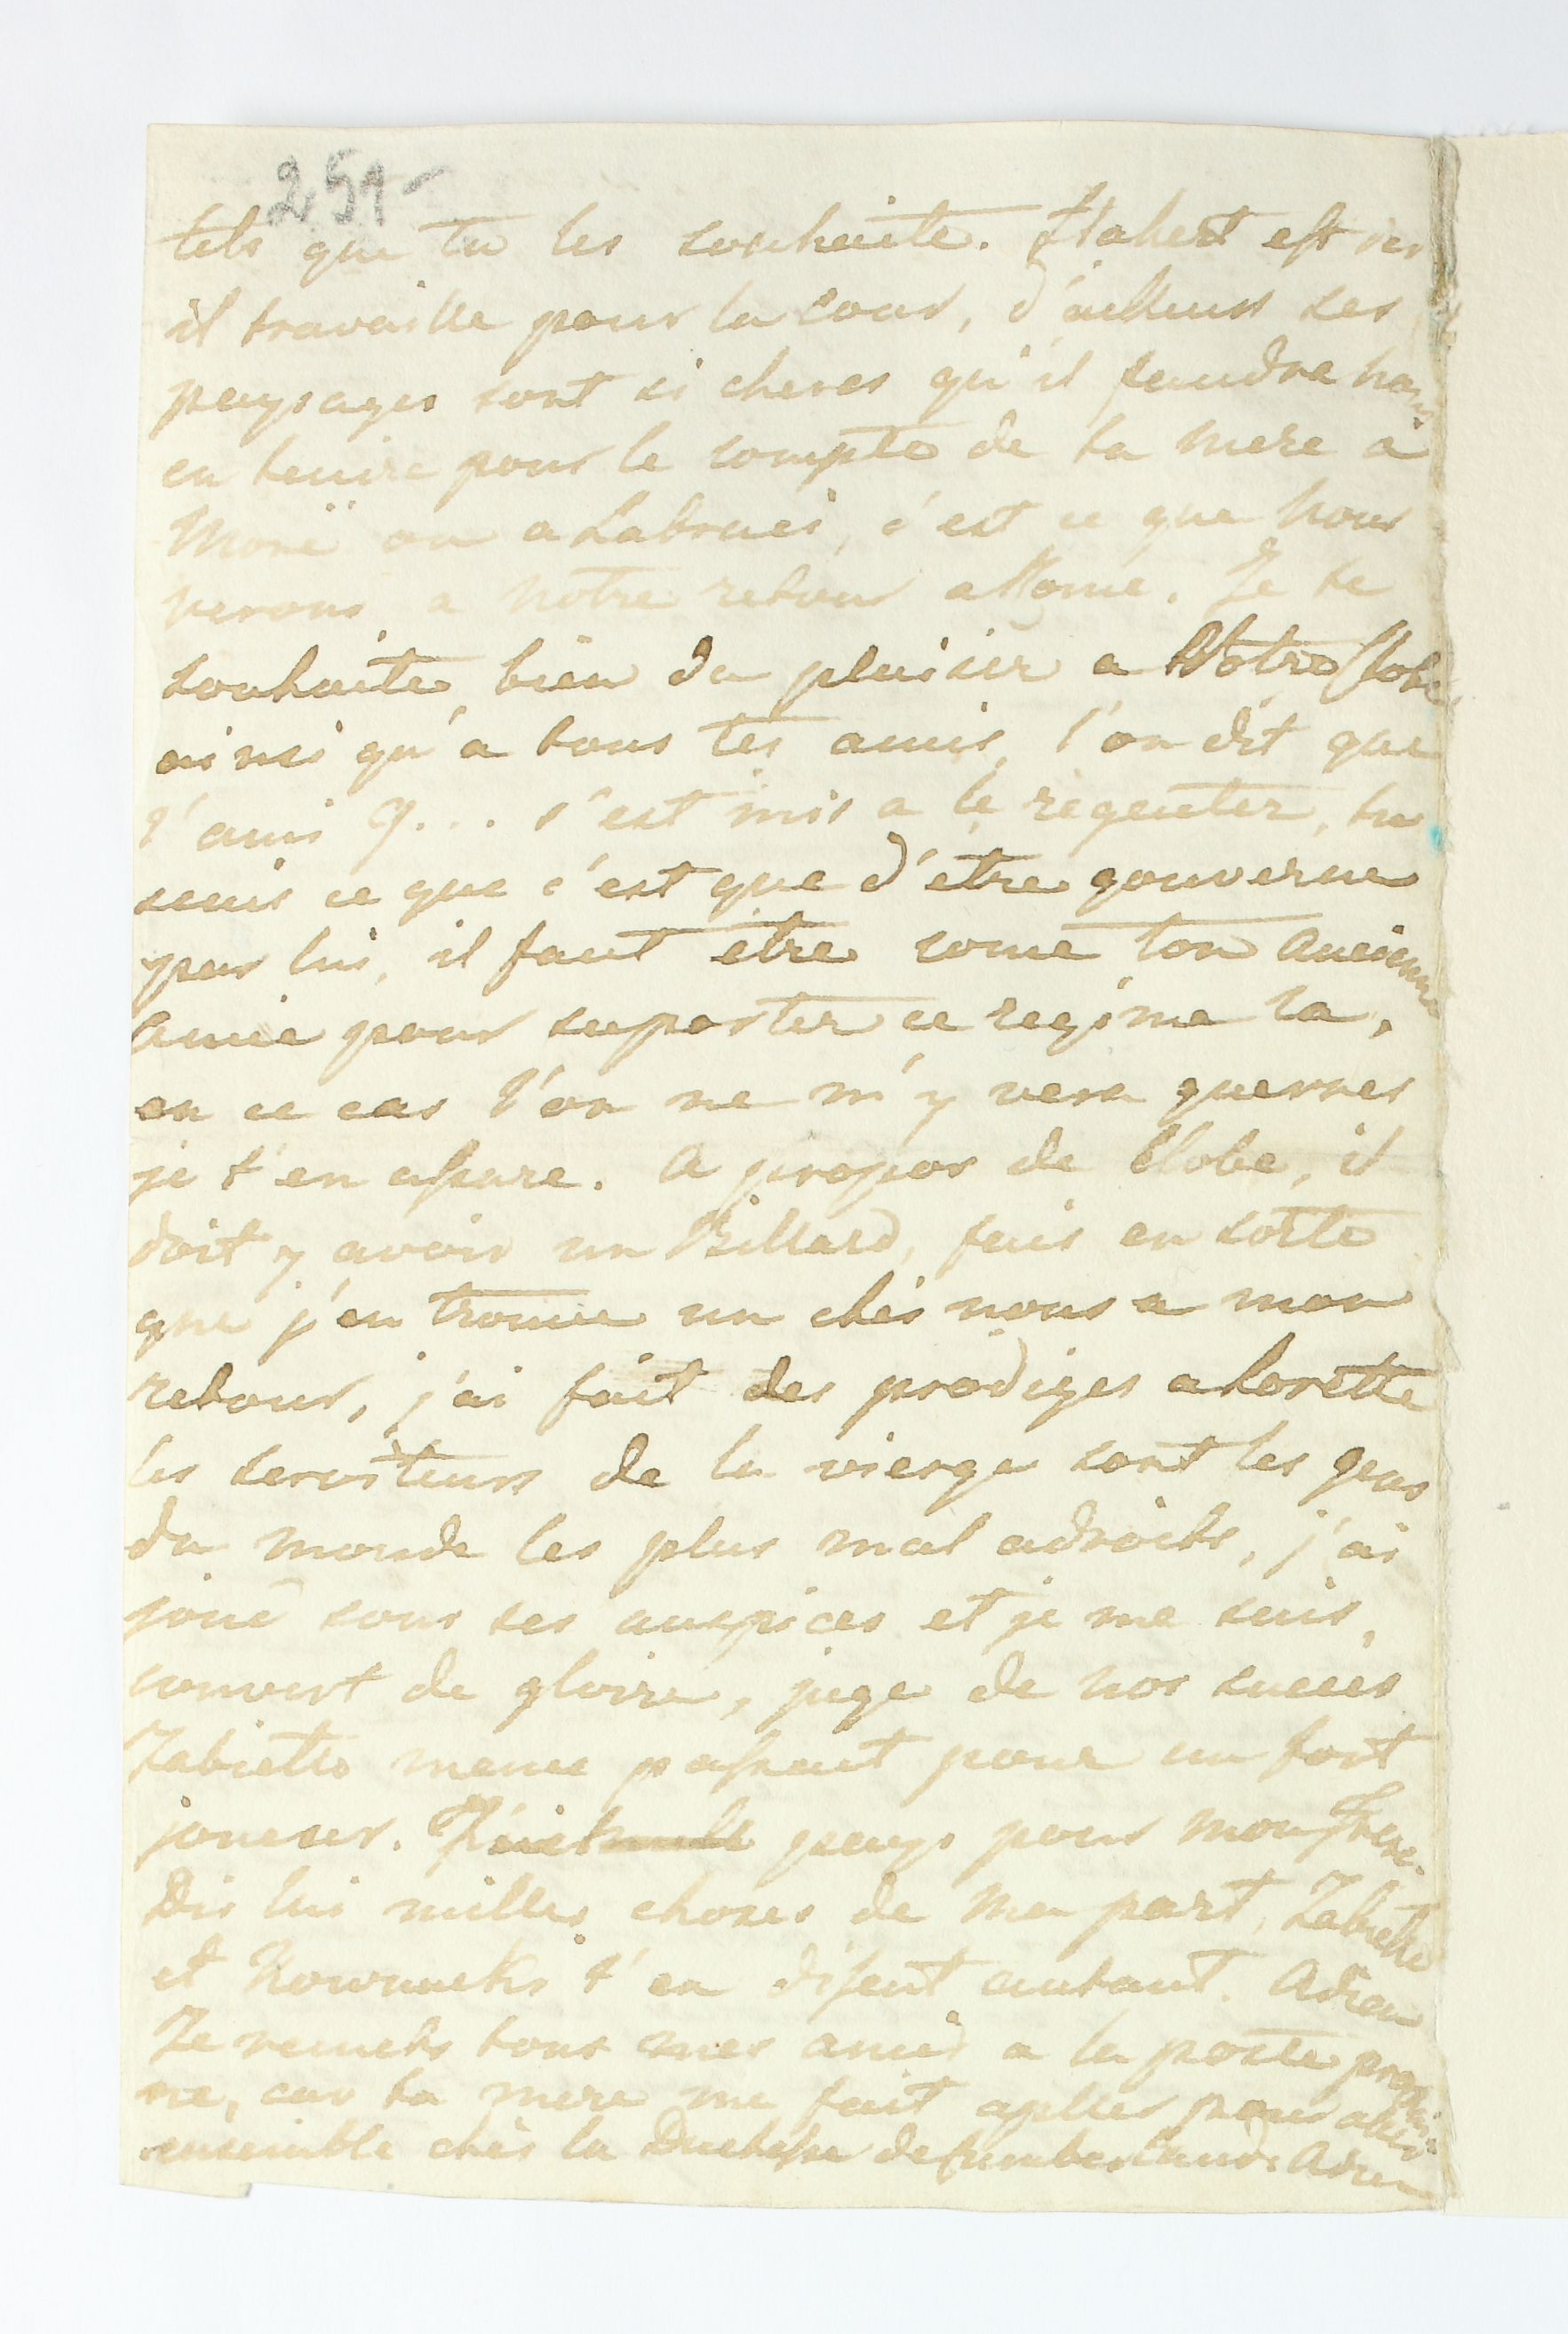 251-
tels que tu les souhaite. Hakert est
il travaille pour la Cour, d'ailleurs ses
paysages sont si cheres qu'il faudra nous
en tenire pour le compte de ta mere à
More ou a Labruei, c'est ce que nous
verons a notre retour a Rome. Je te
souhaite bien du plaisir a Votre Clobe,
ainsi qu'a tous tes amis, l'on dit que
l'ami J... s'est mis a le régenter, tu
sais ce que c'est que d'etre gouverne
par lui, il faut etre come ton ancienne
amie pour suporter ce regime la,
en ce cas l'on ne m'y vera guerres
je t'en assure. A propos de Clobe, il
doit y avoir un Billard, fais en sorte
que j'en trouve un chés nous a mon
retour, j'ai fait des prodiges a Lorette
les serviteurs de la vierge sont les gens
du monde les plus mal adroits, j'ai
joué sous ses auspices et je me suis
couvert de gloire, juge de nos succes
Zabietto meme passant pour un fort
joueur. pays pour mon frere.
Dis lui milles choses de ma part, Zabietto
et Nowinski t'en disent autant. Adieu
Je remets tous mes amis a la poste prochai-
ne, car ta mere me fait apller pour aller
ensemble chés la Duchesse de Cumberland. Adieu